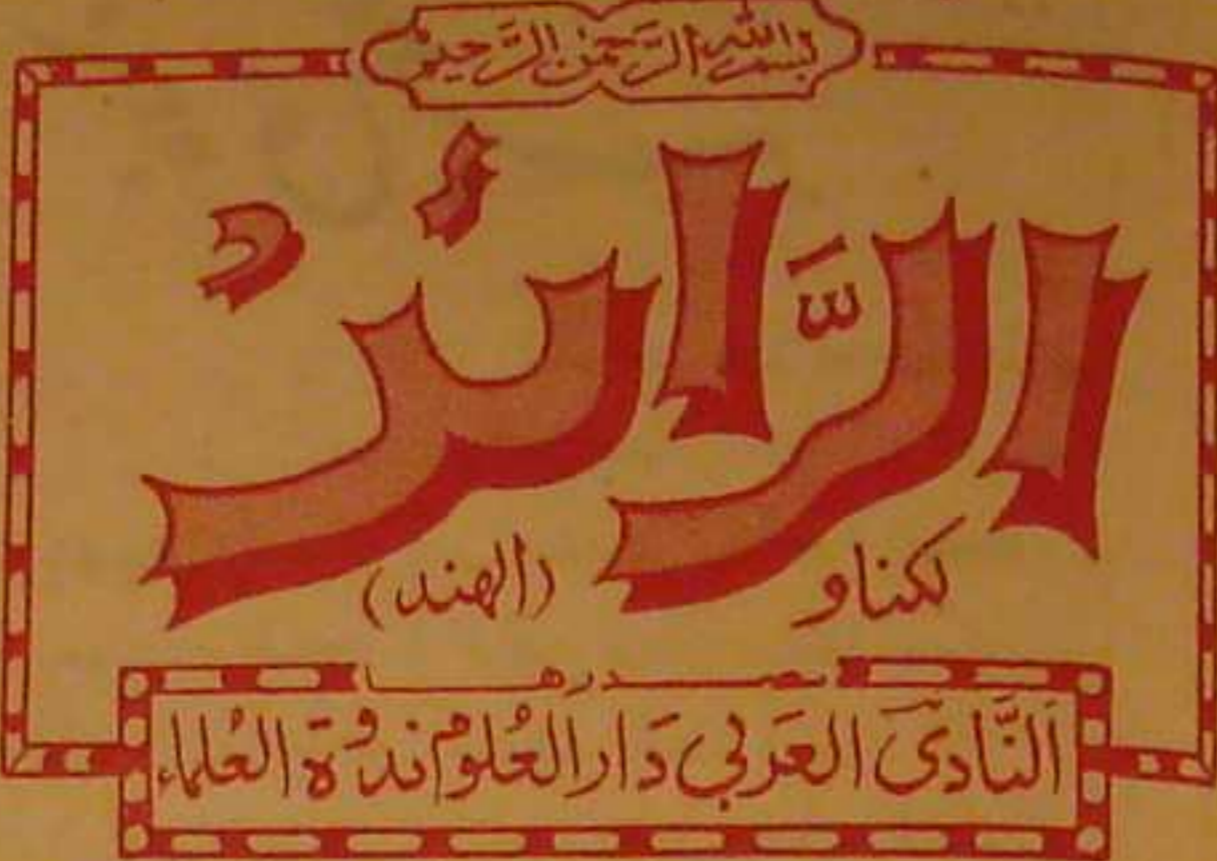 بسم الله الرحمن الرحيم
الرَّائدُ
لكناو (الهند)
تصدرها
اَلنَّادى العَربي دَار العُلوم ندوة العُلماء